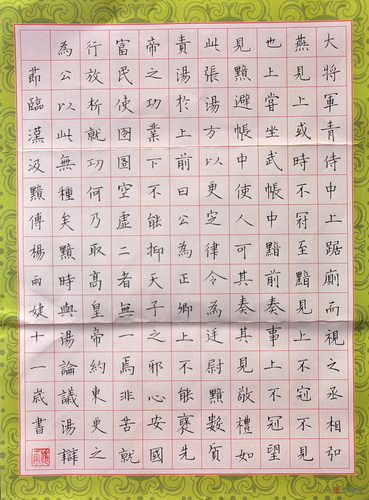 大將軍青侍中上踞廁而視之丞相弘
燕見上或時不冠至黯見上不冠不見
也上嘗坐武帳中黯前奏事上不冠望
見黯避帳中使人可其奏其見敬禮如
此張湯方以更定律令為廷尉黯數質
責湯於上前曰公為正卿上不能褒先
帝之功業下不能抑天子之邪心安國
富民使囹圄空虛二者無一焉非苦就
行放析就功何乃取高皇帝約束更之
為公以此無種矣黯時與湯論議湯辯
節臨漢汲黯傳楊雨婕十一歲書